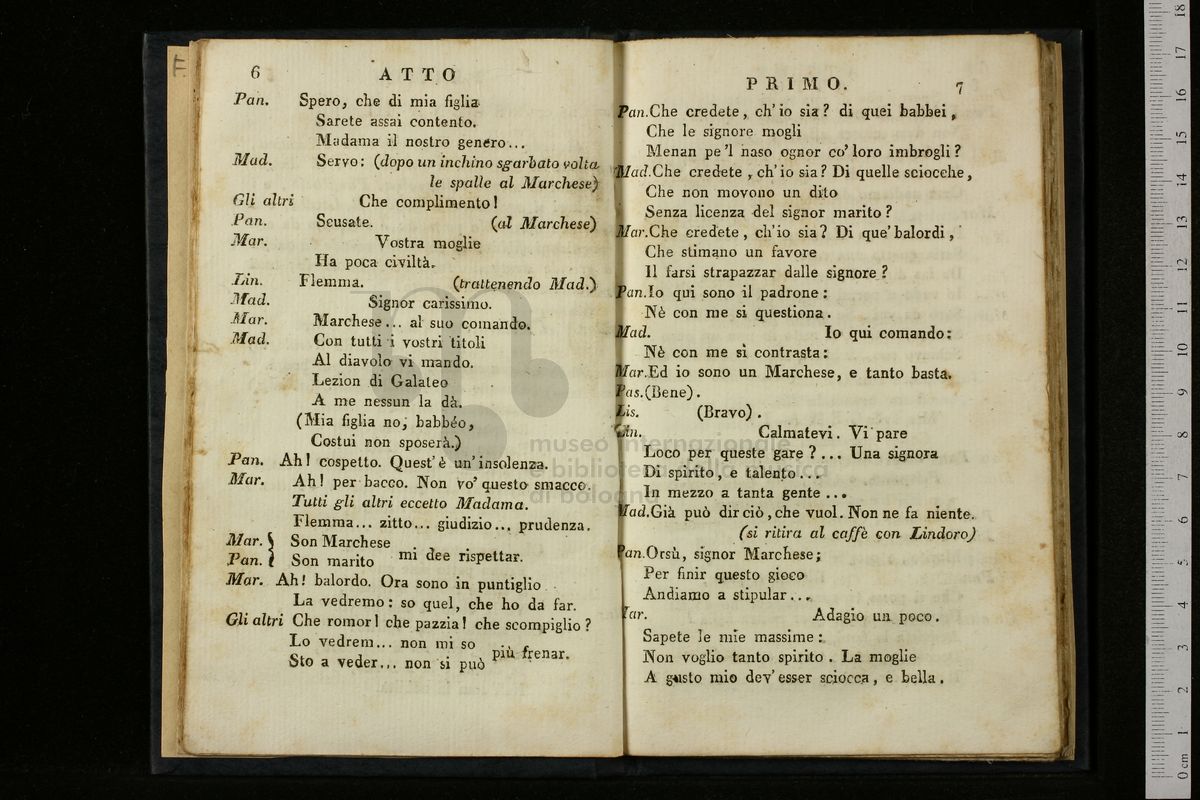 6 ATTO
Pan. Spero, che di mia figlia
Sarete assai contento.
Madama il nostro genero...
Mad. Servo: (dopo un inchino sgarbato volta
le spalle al Marchese)
Gli altri Che complimento!
Pan. Scusate. (al Marchese)
Mar. Vostra moglie
Ha poca civiltà.
Lin. Flemma. (trattenendo Mad.)
Mad. Signor carissimo.
Mar. Marchese... al suo comando.
Mad. Con tutti i vostri titoli
Al diavolo vi mando.
Lezion di Galateo
A me nessun la dà.
(Mia figlia no, babbéo,
Costui non sposerà.)
Pan. Ah! cospetto. Quest'è un'insolenza.
Mar. Ah! per bacco. Non vo' questo smacco.
Tutti gli altri eccetto Madama.
Flemma... zitto... giudizio... prudenza.
Mar. } Son Marchese
Pan. } Son marito mi dee rispettar.
Mar. Ah! balordo. Ora sono in puntiglio
La vedremo: so quel, che ho da far.
Gli altri Che romor! che pazzia! che scompiglio?
Lo vedrem... non mi so
Sto a veder... non si può più frenar.
PRIMO. 7
Pan. Che credete, ch'io sia? di quei babbei,
Che le signore mogli
Menan pe'l naso ognor co' loro imbrogli?
Mad. Che credete, ch'io sia? Di quelle sciocche,
Che non movono un dito
Senza licenza del signor marito?
Mar. Che credete, ch'io sia? Di que' balordi,
Che stimano un favore
Il farsi strapazzar dalle signore?
Pan. Io qui sono il padrone:
Nè con me si questiona.
Mad. Io qui comando:
Nè con me si contrasta:
Mar. Ed io sono un Marchese, e tanto basta.
Pas. (Bene).
Lis. (Bravo).
Lin. Calmatevi. Vi pare
Loco per queste gare?... Una signora
Di spirito, e talento...
In mezzo a tanta gente...
Mad. Già può dir ciò, che vuol. Non ne fa niente.
(si ritira al caffè con Lindoro)
Pan. Orsù, signor Marchese;
Per finir questo gioco
Andiamo a stipular...
Mar. Adagio un poco.
Sapete le mie massime:
Non voglio tanto spirito. La moglie
A gusto mio dev'esser sciocca, e bella.
museo internazionale
e biblioteca della musica
di bologna
0 cm 1 2 3 4 5 6 7 8 9 10 11 12 13 14 15 16 17 18